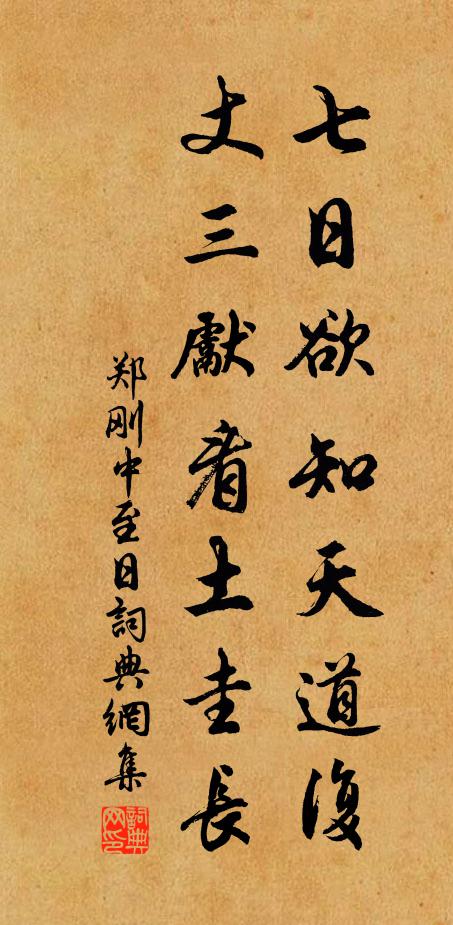 七日欲知天道復
丈三獻看土圭長
郑刚中至日詞典網集
詞典网印